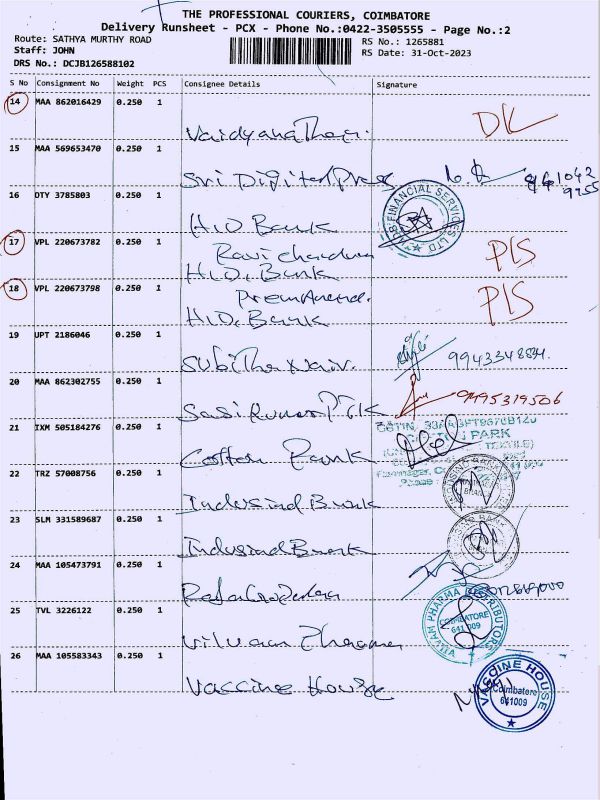 THE PROFESSIONAL COURIERS, COIMBATORE
Delivery Runsheet - PCX - Phone No.:0422-3505555 - Page No.:2
Route: SATHYA MURTHY ROAD RS No.: 1265881
Staff: JOHN RS Date: 31-Oct-2023
DRS No.: DCJB126588102
S No Consignment No Weight PCS Consignee Details Signature
14 MAA 862016429 0.250 1
DL
15 MAA 569653470 0.250 1
Sri Digital Press
16 DTY 3785803 0.250 1
FINANCIAL SERVICES LTD
Bank
17 VPL 220673782 0.250 1
Ravichandran
Bank
PLS
18 VPL 220673798 0.250 1
Premanand.
Bank
PLS
19 UPT 2186046 0.250 1
Subitha Nair.
20 MAA 862302755 0.250 1
9495319506
21 IXM 505184276 0.250 1
PARK
22 TRZ 57008756 0.250 1
Indusind Bank
23 SLM 331589687 0.250 1
Indusind Bank
24 MAA 105473791 0.250 1
25 TVL 3226122 0.250 1
VILVAM PHARMA DISTRIBUTORS
COIMBATORE
641 009
Pharma
26 MAA 105583343 0.250 1
Vaccine House
VACCINE HOUSE
Coimbatore
641009